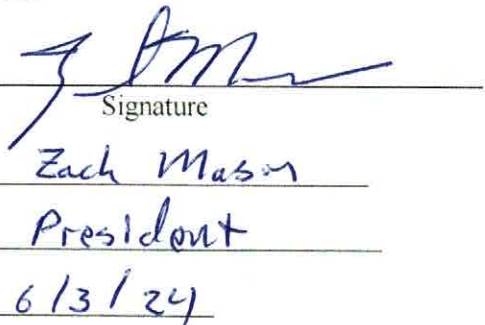 Signature
Zach Mason
President
6/3/24